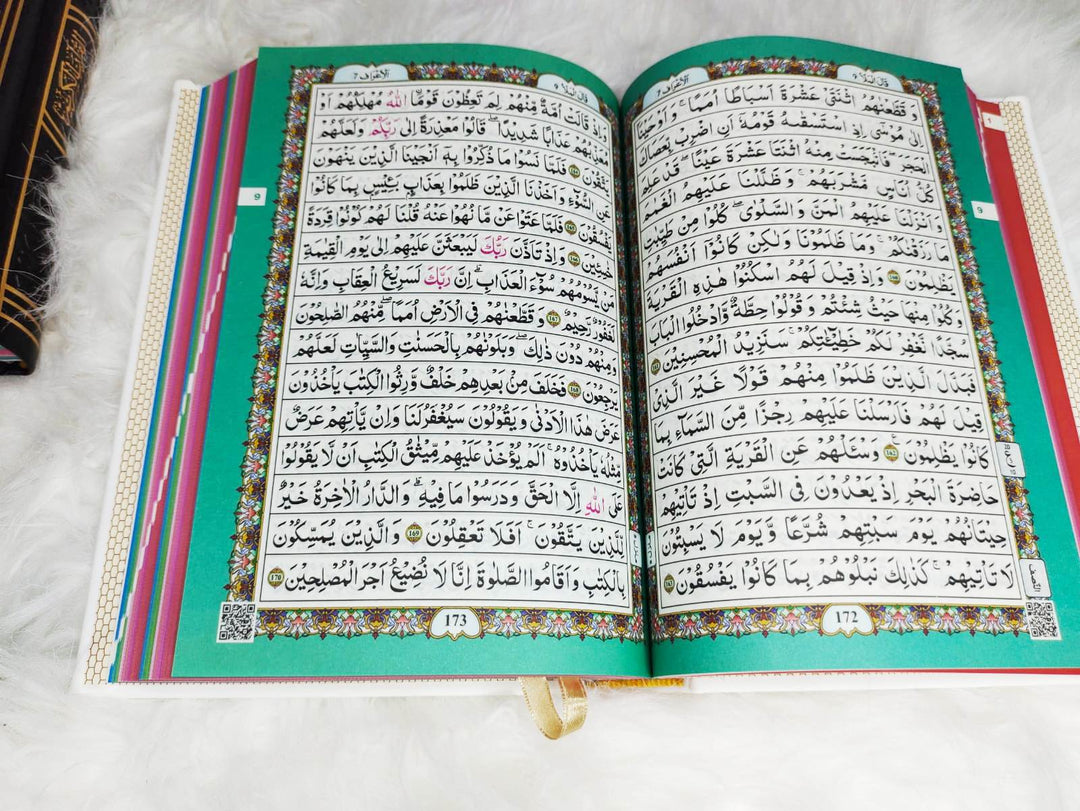 الاعراف ٧
قال الملا ٩
وَ قَطَّعْنٰهُمُ اثْنَتَیْ عَشْرَةَ اَسْبَاطًا اُمَمًا ؕ وَ اَوْحَیْنَاۤ
اِلٰی مُوْسٰۤی اِذِ اسْتَسْقٰىهُ قَوْمُهٗۤ اَنِ اضْرِبْ بِّعَصَاكَ
الْحَجَرَ ۚ فَانْۢبَجَسَتْ مِنْهُ اثْنَتَا عَشْرَةَ عَیْنًا ؕ قَدْ عَلِمَ
كُلُّ اُنَاسٍ مَّشْرَبَهُمْ ؕ وَ ظَلَّلْنَا عَلَیْهِمُ الْغَمَامَ
وَ اَنْزَلْنَا عَلَیْهِمُ الْمَنَّ وَ السَّلْوٰی ؕ كُلُوْا مِنْ طَیِّبٰتِ
مَا رَزَقْنٰكُمْ ؕ وَ مَا ظَلَمُوْنَا وَ لٰكِنْ كَانُوْۤا اَنْفُسَهُمْ
یَظْلِمُوْنَ وَ اِذْ قِیْلَ لَهُمُ اسْكُنُوْا هٰذِهِ الْقَرْیَةَ
وَ كُلُوْا مِنْهَا حَیْثُ شِئْتُمْ وَ قُوْلُوْا حِطَّةٌ وَّ ادْخُلُوا الْبَابَ
سُجَّدًا نَّغْفِرْ لَكُمْ خَطِیْٓـٰٔتِكُمْ ؕ سَنَزِیْدُ الْمُحْسِنِیْنَ
فَبَدَّلَ الَّذِیْنَ ظَلَمُوْا مِنْهُمْ قَوْلًا غَیْرَ الَّذِیْ
قِیْلَ لَهُمْ فَاَرْسَلْنَا عَلَیْهِمْ رِجْزًا مِّنَ السَّمَآءِ بِمَا
كَانُوْا یَظْلِمُوْنَ 162 وَ سْـَٔلْهُمْ عَنِ الْقَرْیَةِ الَّتِیْ كَانَتْ
حَاضِرَةَ الْبَحْرِ ۘ اِذْ یَعْدُوْنَ فِی السَّبْتِ اِذْ تَاْتِیْهِمْ
حِیْتَانُهُمْ یَوْمَ سَبْتِهِمْ شُرَّعًا وَّ یَوْمَ لَا یَسْبِتُوْنَ ۙ
لَا تَاْتِیْهِمْ ۛۚ كَذٰلِكَ ۛۚ نَبْلُوْهُمْ بِمَا كَانُوْا یَفْسُقُوْنَ 163
172
9
الاعراف ٧
قال الملا ٩
وَ اِذْ قَالَتْ اُمَّةٌ مِّنْهُمْ لِمَ تَعِظُوْنَ قَوْمَا ۙ اللّٰهُ مُهْلِكُهُمْ اَوْ
مُعَذِّبُهُمْ عَذَابًا شَدِیْدًا ؕ قَالُوْا مَعْذِرَةً اِلٰی رَبِّكُمْ وَ لَعَلَّهُمْ
یَتَّقُوْنَ فَلَمَّا نَسُوْا مَا ذُكِّرُوْا بِهٖۤ اَنْجَیْنَا الَّذِیْنَ یَنْهَوْنَ
عَنِ السُّوْٓءِ وَ اَخَذْنَا الَّذِیْنَ ظَلَمُوْا بِعَذَابٍۭ بَىِٕیْسٍۭ بِمَا كَانُوْا
یَفْسُقُوْنَ فَلَمَّا عَتَوْا عَنْ مَّا نُهُوْا عَنْهُ قُلْنَا لَهُمْ كُوْنُوْا قِرَدَةً
خٰسِـِٕیْنَ وَ اِذْ تَاَذَّنَ رَبُّكَ لَیَبْعَثَنَّ عَلَیْهِمْ اِلٰی یَوْمِ الْقِیٰمَةِ
مَنْ یَّسُوْمُهُمْ سُوْٓءَ الْعَذَابِ ؕ اِنَّ رَبَّكَ لَسَرِیْعُ الْعِقَابِ ۖۚ وَ اِنَّهٗ
لَغَفُوْرٌ رَّحِیْمٌ 167 وَ قَطَّعْنٰهُمْ فِی الْاَرْضِ اُمَمًا ۚ مِنْهُمُ الصّٰلِحُوْنَ
وَ مِنْهُمْ دُوْنَ ذٰلِكَ ؗ وَ بَلَوْنٰهُمْ بِالْحَسَنٰتِ وَ السَّیِّاٰتِ لَعَلَّهُمْ
یَرْجِعُوْنَ 168 فَخَلَفَ مِنْۢ بَعْدِهِمْ خَلْفٌ وَّرِثُوا الْكِتٰبَ یَاْخُذُوْنَ
عَرَضَ هٰذَا الْاَدْنٰی وَ یَقُوْلُوْنَ سَیُغْفَرُ لَنَا ۚ وَ اِنْ یَّاْتِهِمْ عَرَضٌ
مِّثْلُهٗ یَاْخُذُوْهُ ؕ اَلَمْ یُؤْخَذْ عَلَیْهِمْ مِّیْثَاقُ الْكِتٰبِ اَنْ لَّا یَقُوْلُوْا
عَلَی اللّٰهِ اِلَّا الْحَقَّ وَ دَرَسُوْا مَا فِیْهِ ؕ وَ الدَّارُ الْاٰخِرَةُ خَیْرٌ
لِّلَّذِیْنَ یَتَّقُوْنَ ؕ اَفَلَا تَعْقِلُوْنَ 169 وَ الَّذِیْنَ یُمَسِّكُوْنَ
بِالْكِتٰبِ وَ اَقَامُوا الصَّلٰوةَ ؕ اِنَّا لَا نُضِیْعُ اَجْرَ الْمُصْلِحِیْنَ 170
173
9